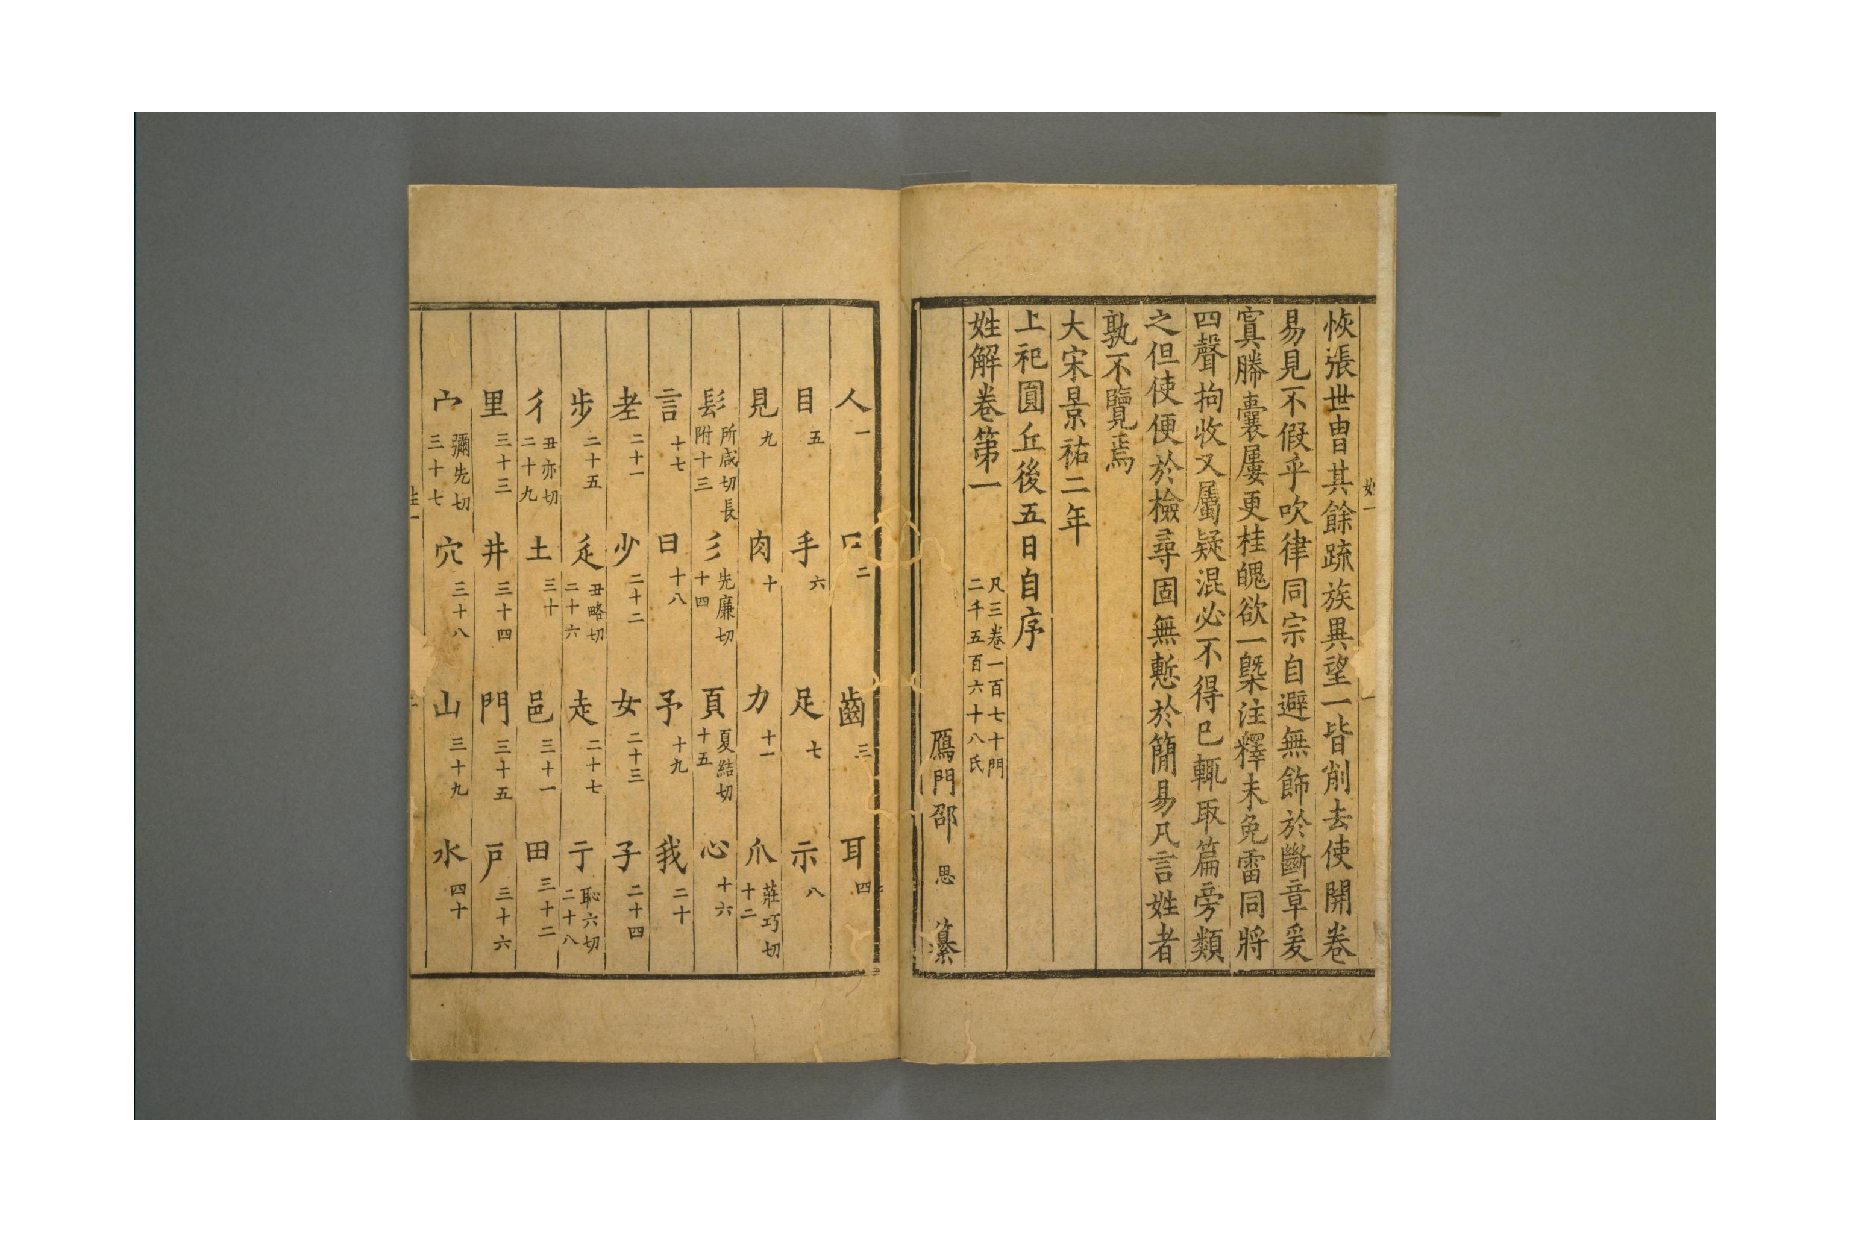 恢張世曺其餘疏族異望一皆削去使開卷
易見不假乎吹律同宗自避無飾於斷章爰
寘勝囊屢更桂魄欲一槩注釋未免雷同將
四聲拘收又屬疑混必不得已輒取篇旁類
之但使便於檢尋固無慙於簡易凡言姓者
孰不覽焉
大宋景祐二年
上祀圓丘後五日自序
姓解卷第一 凡三卷一百七十門
二千五百六十八氏
鴈門邵 思 纂
人一 口二 齒三 耳四
目五 手六 足七 示八
見九 肉十 力十一 爪莊巧切十二
髟所咸切長附十三 彡先廉切十四 頁夏結切十五 心十六
言十七 曰十八 予十九 我二十
老二十一 少二十二 女二十三 子二十四
步二十五 辵丑略切二十六 走二十七 亍恥六切二十八
彳丑亦切二十九 土三十 邑三十一 田三十二
里三十三 井三十四 門三十五 戶三十六
宀彌先切三十七 穴三十八 山三十九 水四十